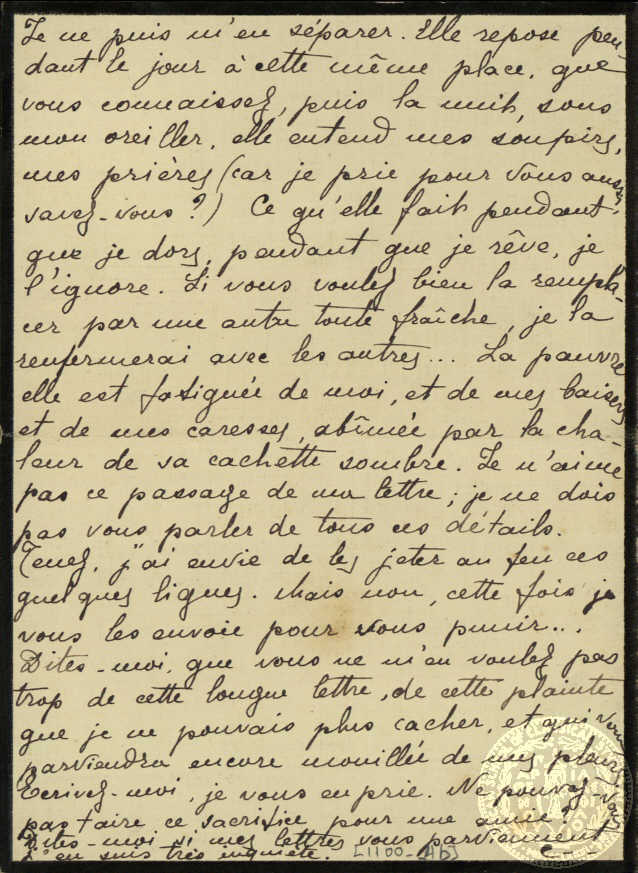 Je ne puis m'en séparer. Elle repose pen-
dant le jour à cette même place, que
vous connaissez, puis la nuit, sous
mon oreiller, elle entend mes soupirs,
mes prières (car je prie pour vous aussi,
savez-vous?) Ce qu'elle fait pendant
que je dors, pendant que je rêve, je
l'ignore. Si vous voulez bien la rempla-
cer par une autre toute fraîche, je la
renfermerai avec les autres... La pauvre
elle est fatiguée de moi, et de mes baisers
et de mes caresses, abîmée par la cha-
leur de sa cachette sombre. Je n'aime
pas ce passage de ma lettre; je ne dois
pas vous parler de tous ces détails.
Tenez, j'ai envie de les jeter au feu ces
quelques lignes. Mais non, cette fois je
vous les envoie pour vous punir...
Dites-moi, que vous ne m'en voulez pas
trop de cette longue lettre, de cette plainte
que je ne pouvais plus cacher, et qui vous
parviendra encore mouillée de mes pleurs
Ecrivez-moi, je vous en prie. Ne pouvez-vous
pas faire ce sacrifice pour une amie?
Dites-moi si mes lettres vous parviennent
J'en suis très inquiète. [1100-4b]